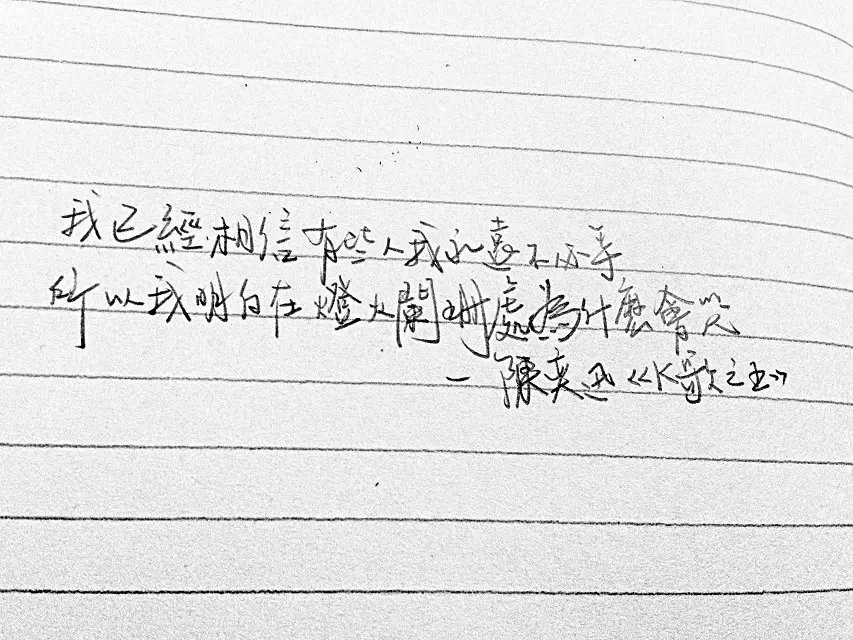 我已經相信有些人我永遠不必等
所以我明白在燈火闌珊處為什麼會哭
— 陳奕迅《K歌之王》